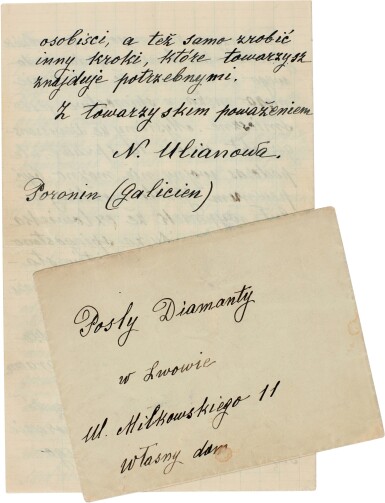 osobiści, a też samo zrobić
inny kroki, które towarzysz
znajduje potrzebnymi.
Z towarzyskim poważeniem
N. Ulianowa.
Poronin (Galicien)
Posły Diamanty
w Lwowie
ul. Milkowskiego 11
własny dom